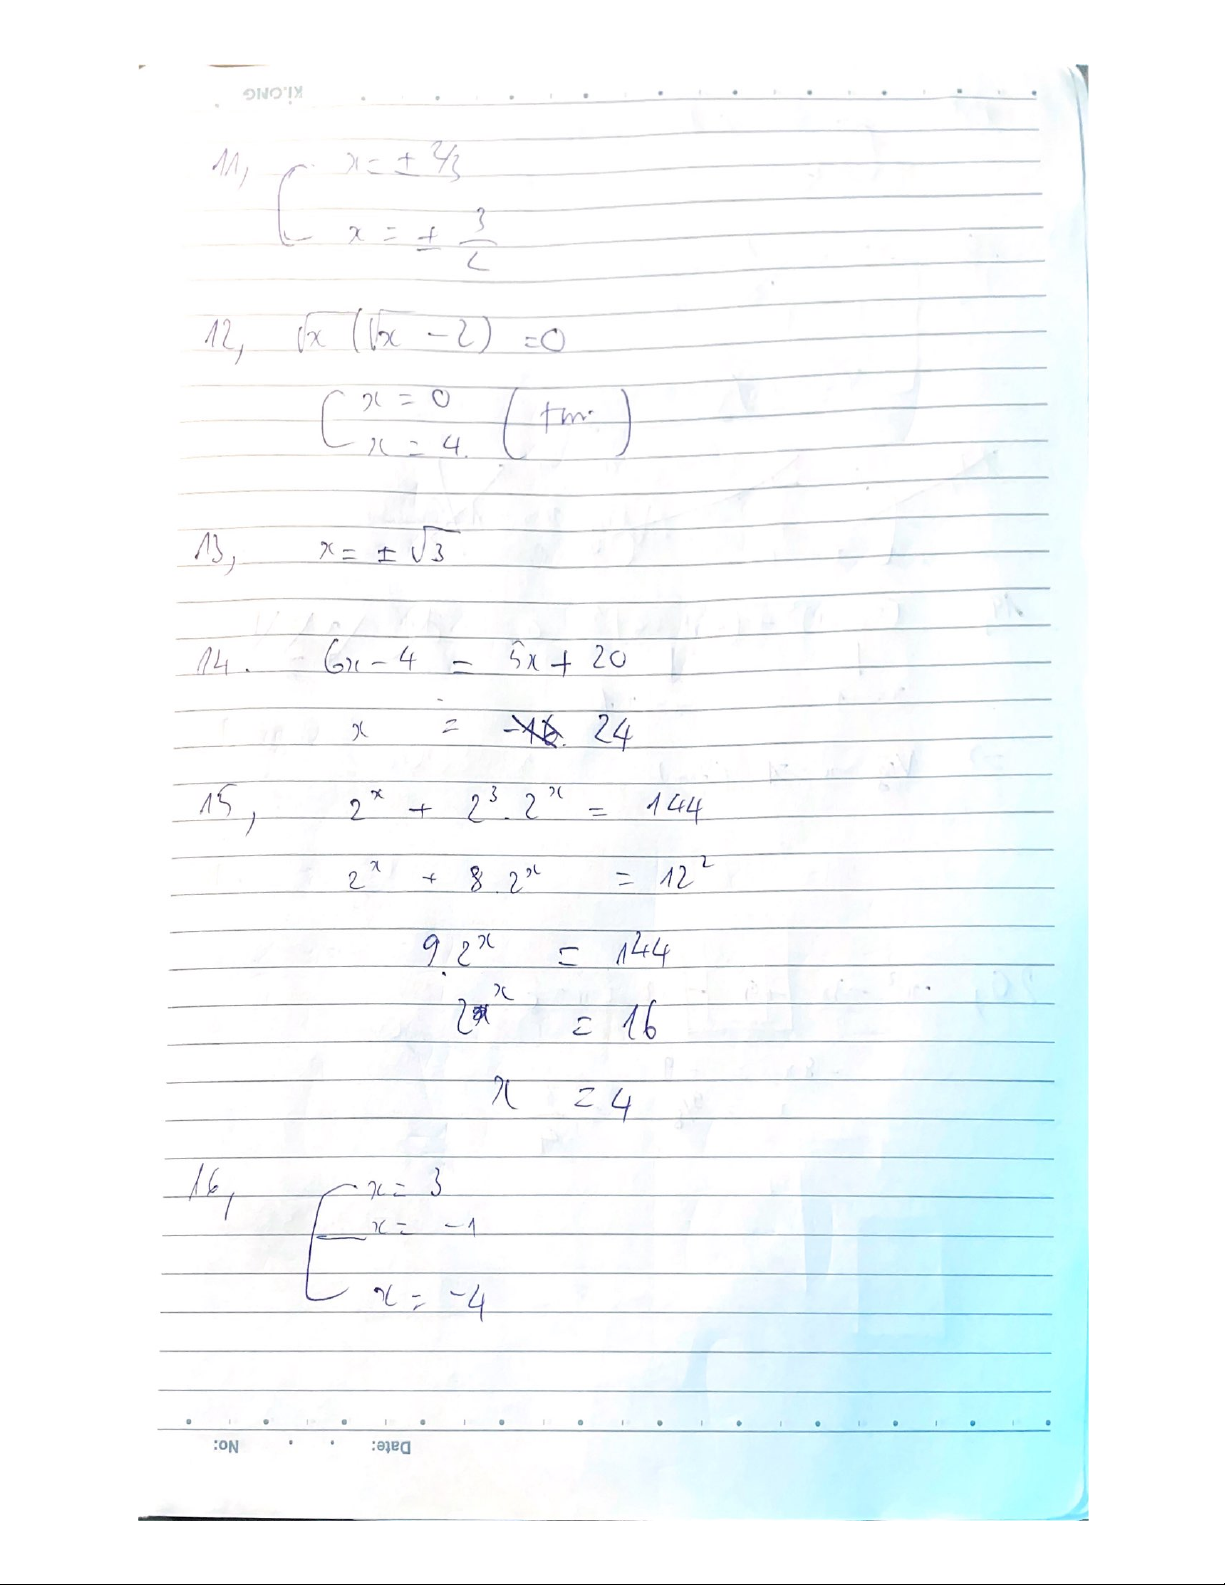 KLONG
11, [ x = ± 2/3
x = ± 3/2
12, √x (√x - 2) = 0
[ x = 0
x = 4. (tm)
13, x = ± √3
14. 6x - 4 = 5x + 20
x = 24
15, 2^x + 2^3 . 2^x = 144
2^x + 8 . 2^x = 12^2
9 . 2^x = 144
2^x = 16
x = 4
16, [ x = 3
x = -1
x = -4
Date: No: